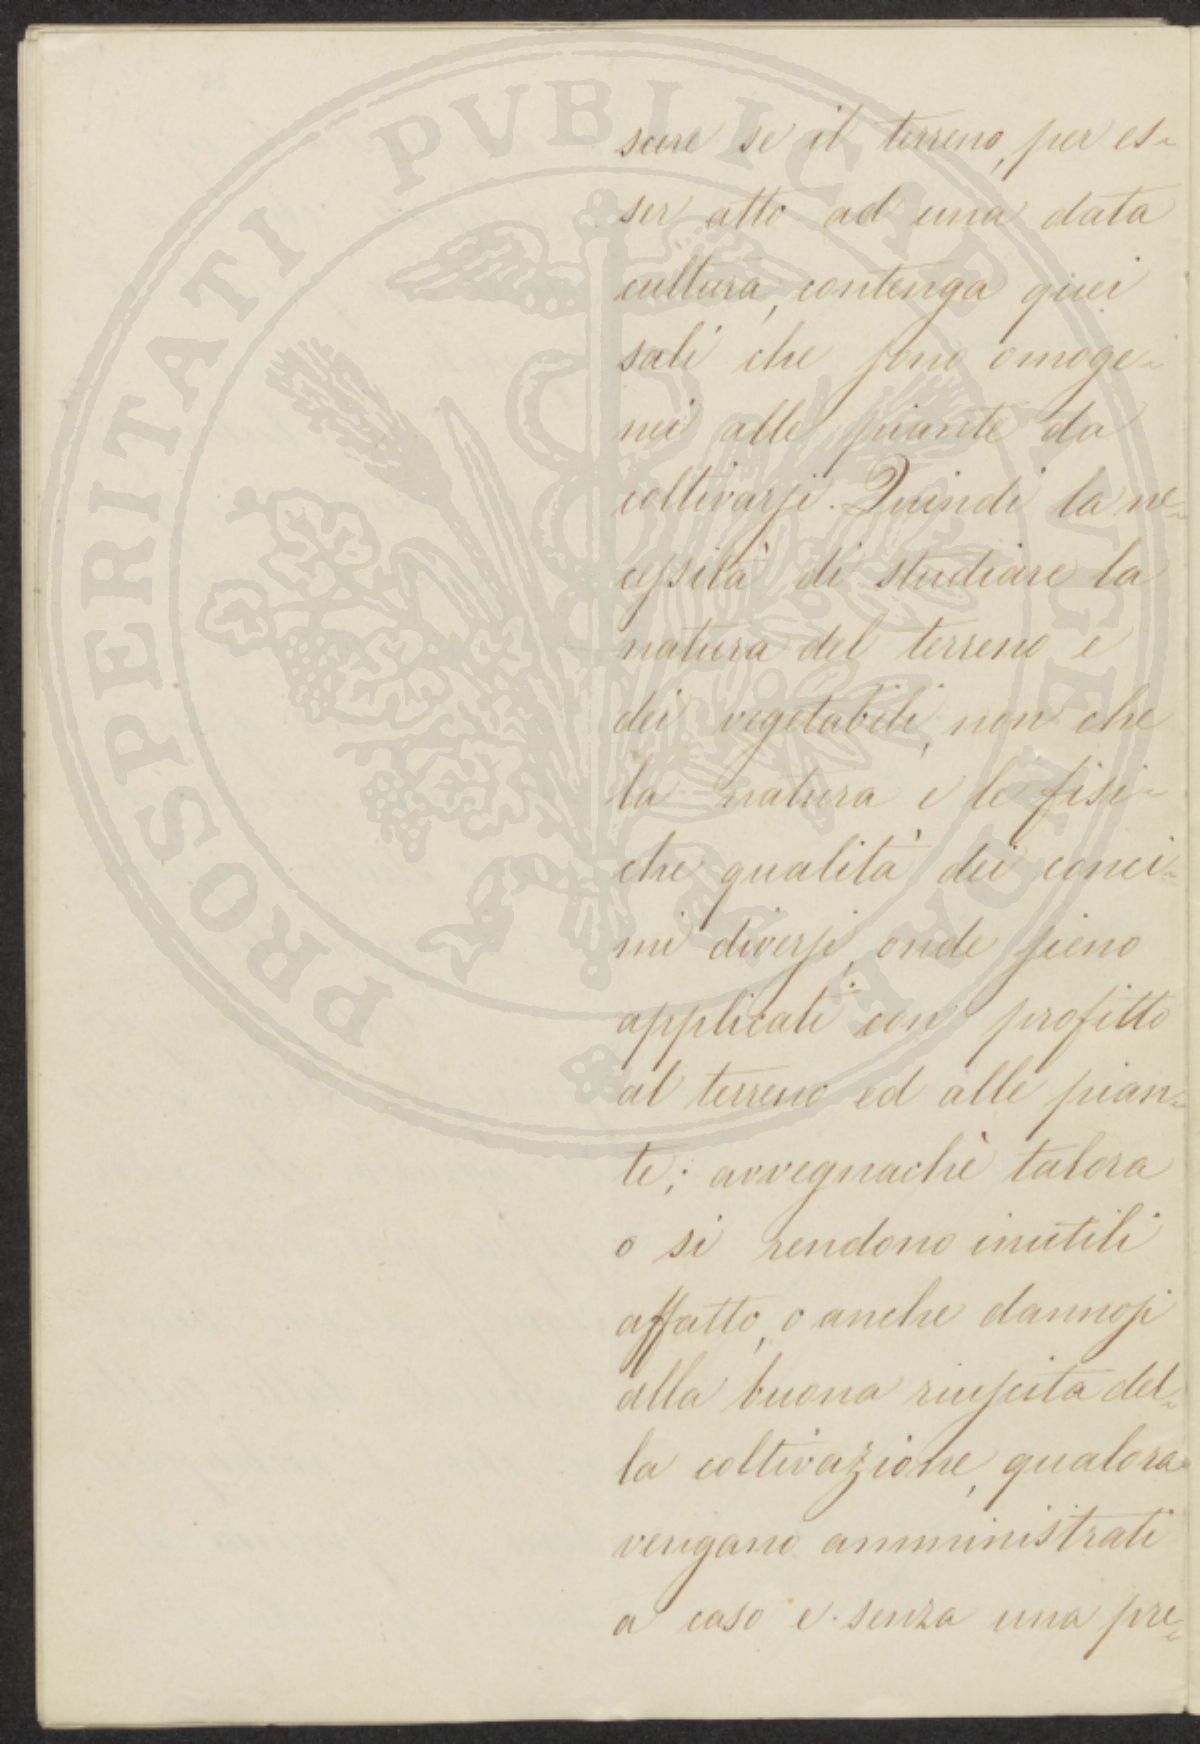 PROSPERITATI PVBLICAE AVGENDAE
scere se il terreno, per es-
ser atto ad una data
cultura, contenga quei
sali che sono omoge-
nei alle piante da
coltivarsi. Quindi la ne-
cessità di studiare la
natura del terreno e
dei vegetabili, non che
la natura e le fisi-
che qualità dei conci-
mi diversi, onde sieno
applicati con profitto
al terreno ed alle pian-
te; avvegnachè talora
o si rendono inutili
affatto, o anche dannosi
alla buona riuscita del-
la coltivazione, qualora
vengano amministrati
a caso e senza una pre-